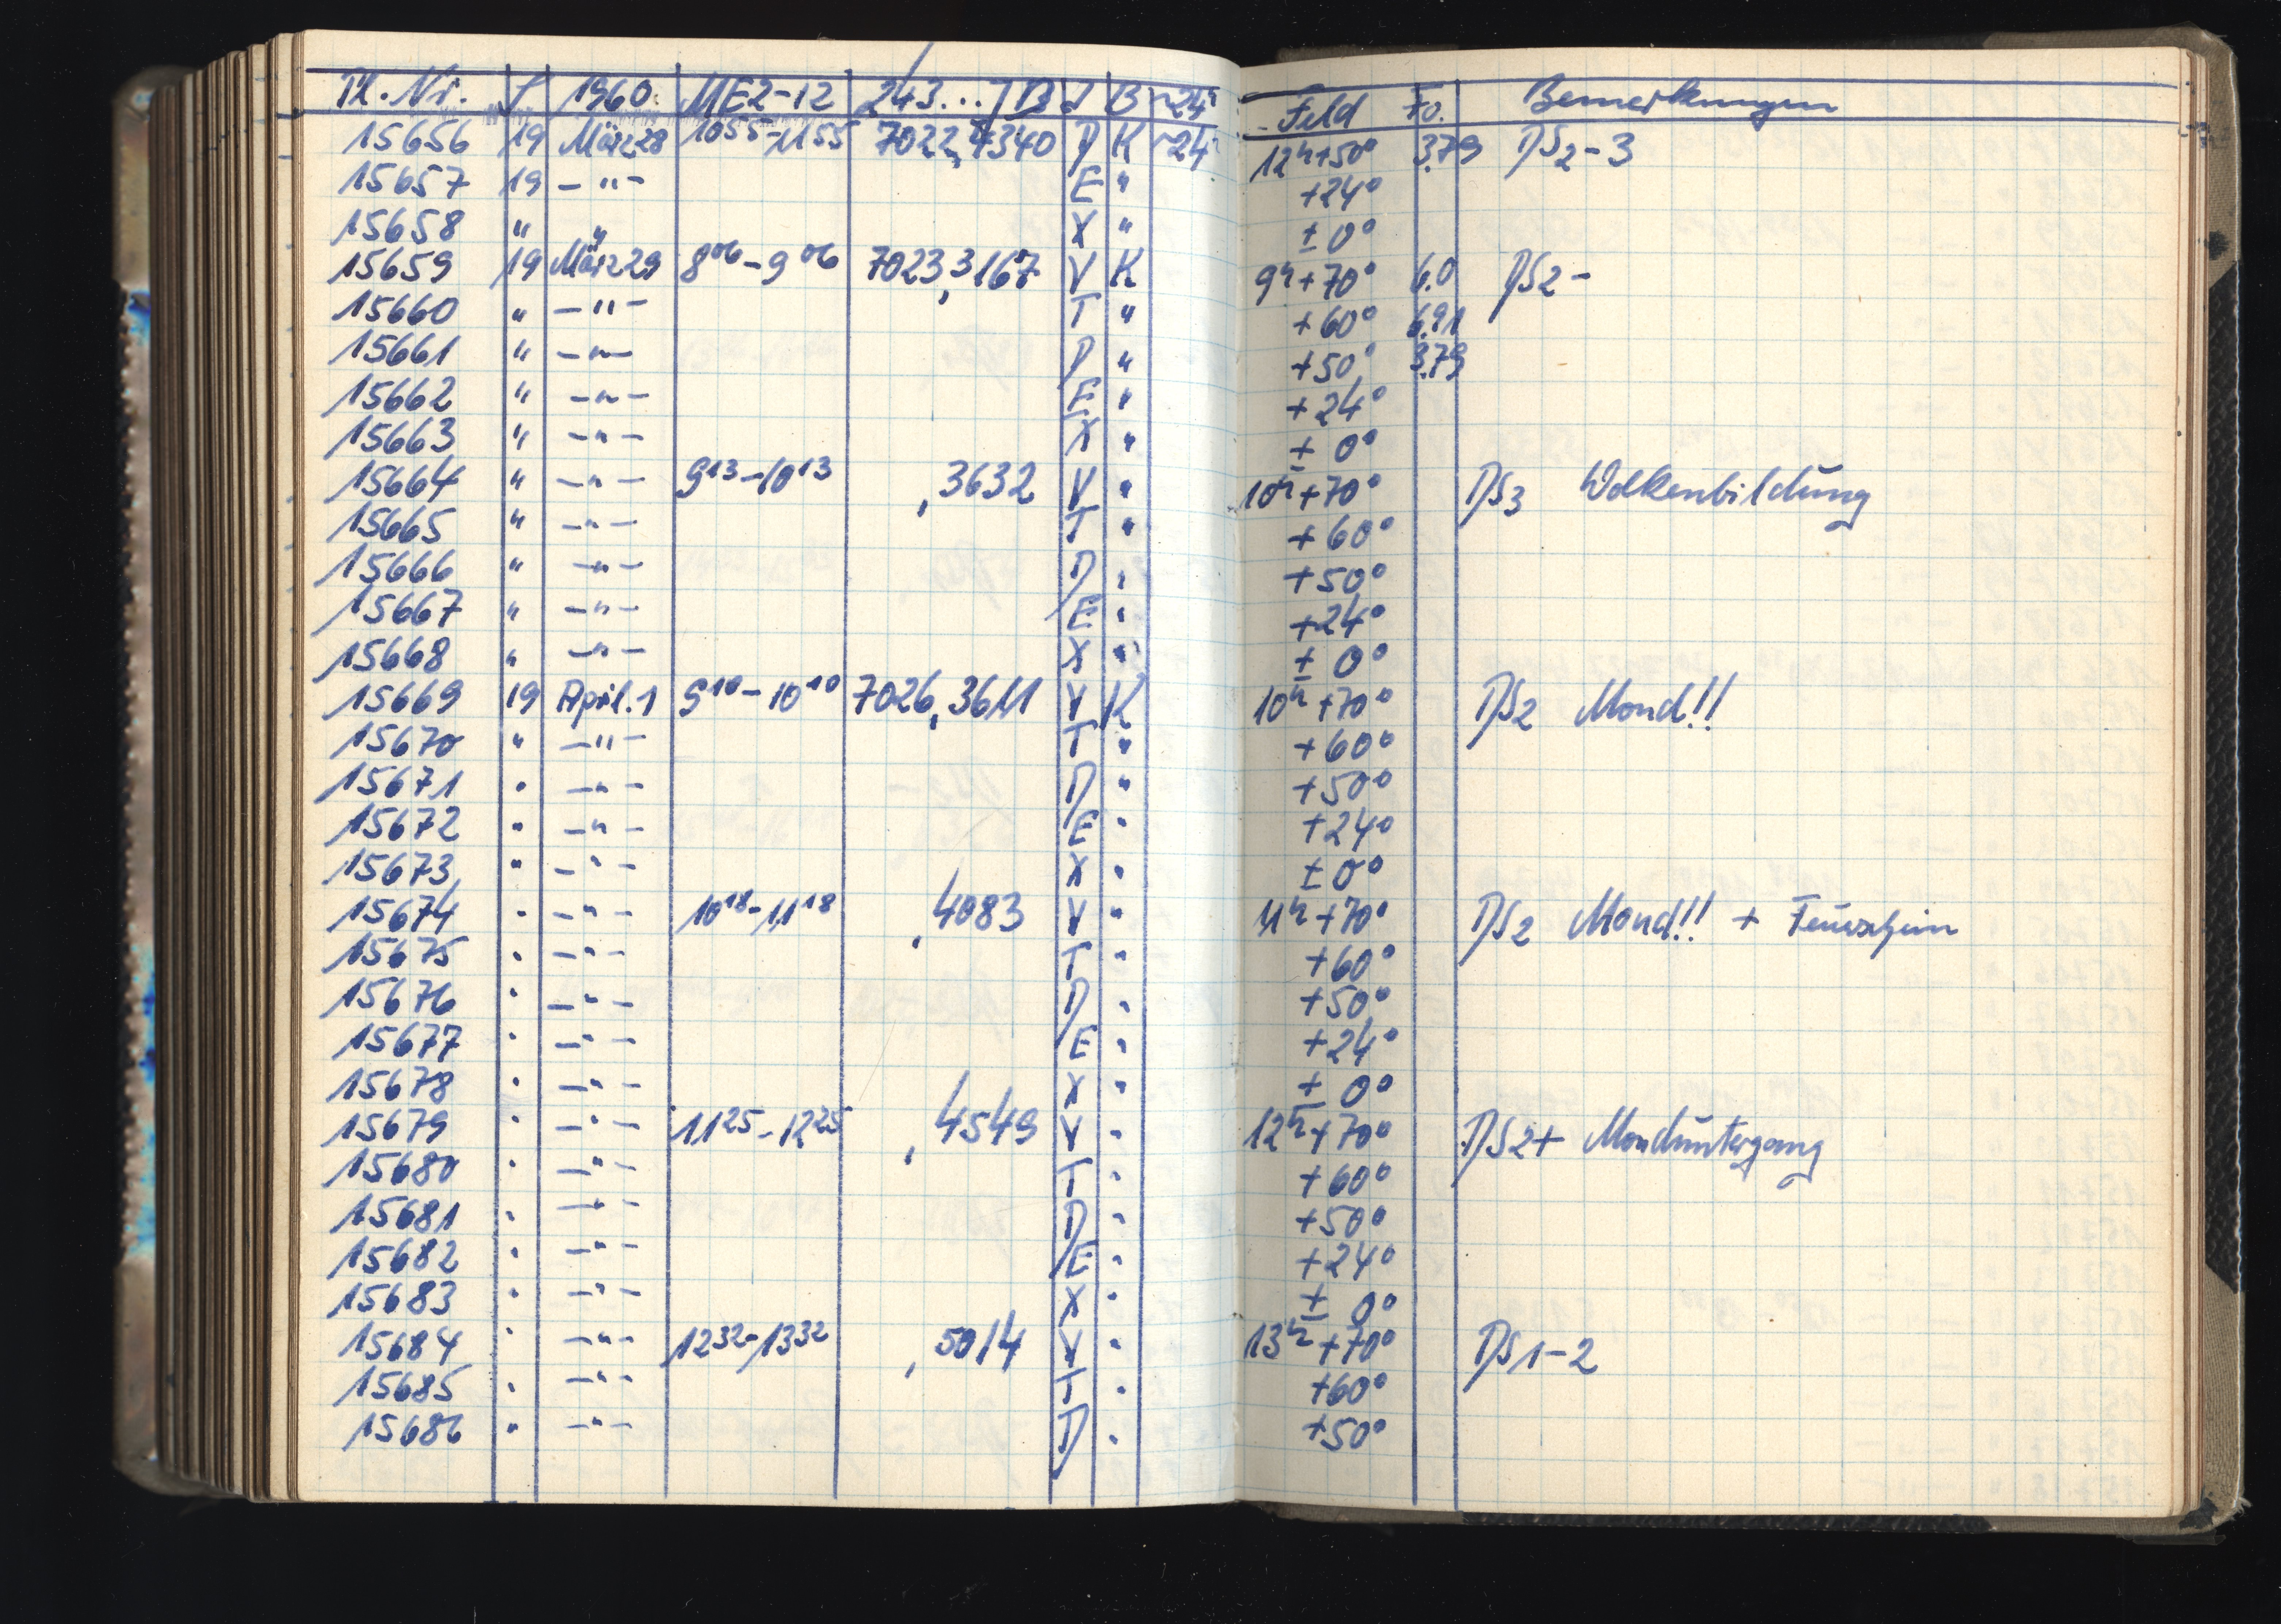 Pl. Nr. S 1960 MEZ-12 243... JD J B ~24h Feld Fo. Bemerkungen
15656 19 März 28 10 55 - 11 55 7022,4340 D K ~24h 12h+50° 3.79 DS2-3
15657 19 -"- E " +24°
15658 " " X " ±0°
15659 19 März 29 8 06 - 9 06 7023,3167 V K 9h+70° 6.0 DS2-
15660 " -"- T " +60° 6.91
15661 " -"- D " +50° 3.79
15662 " -"- E " +24°
15663 " -"- X " ±0°
15664 " -"- 9 13 - 10 13 ,3632 V " 10h+70° DS3 Wolkenbildung
15665 " -"- T " +60°
15666 " -"- D " +50°
15667 " -"- E " +24°
15668 " -"- X " ±0°
15669 19 April 1 9 10 - 10 10 7026,3611 V K 10h+70° DS2 Mond!!
15670 " -"- T " +60°
15671 " -"- D " +50°
15672 " -"- E " +24°
15673 " -"- X " ±0°
15674 " -"- 10 18 - 11 18 ,4083 V " 11h+70° DS2 Mond!! + Feuerschein
15675 " -"- T " +60°
15676 " -"- D " +50°
15677 " -"- E " +24°
15678 " -"- X " ±0°
15679 " -"- 11 25 - 12 25 ,4549 V " 12h+70° DS2+ Monduntergang
15680 " -"- T " +60°
15681 " -"- D " +50°
15682 " -"- E " +24°
15683 " -"- X " ±0°
15684 " -"- 12 32 - 13 32 ,5014 V " 13h+70° DS1-2
15685 " -"- T " +60°
15686 " -"- D " +50°